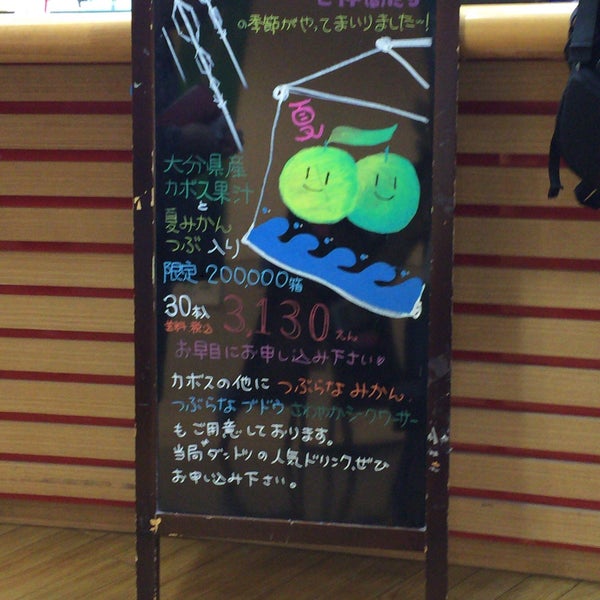 の季節がやってまいりました〜!
夏
大分県産
カボス果汁
と
夏みかん
つぶ入り
限定 200,000箱
30本入
送料税込 3,130えん
お早目にお申し込み下さい
カボスの他に つぶらなみかん
つぶらなブドウ さわやかシークワーサー
もご用意しております。
当局ダントツの人気ドリンク、ぜひ
お申し込み下さい。